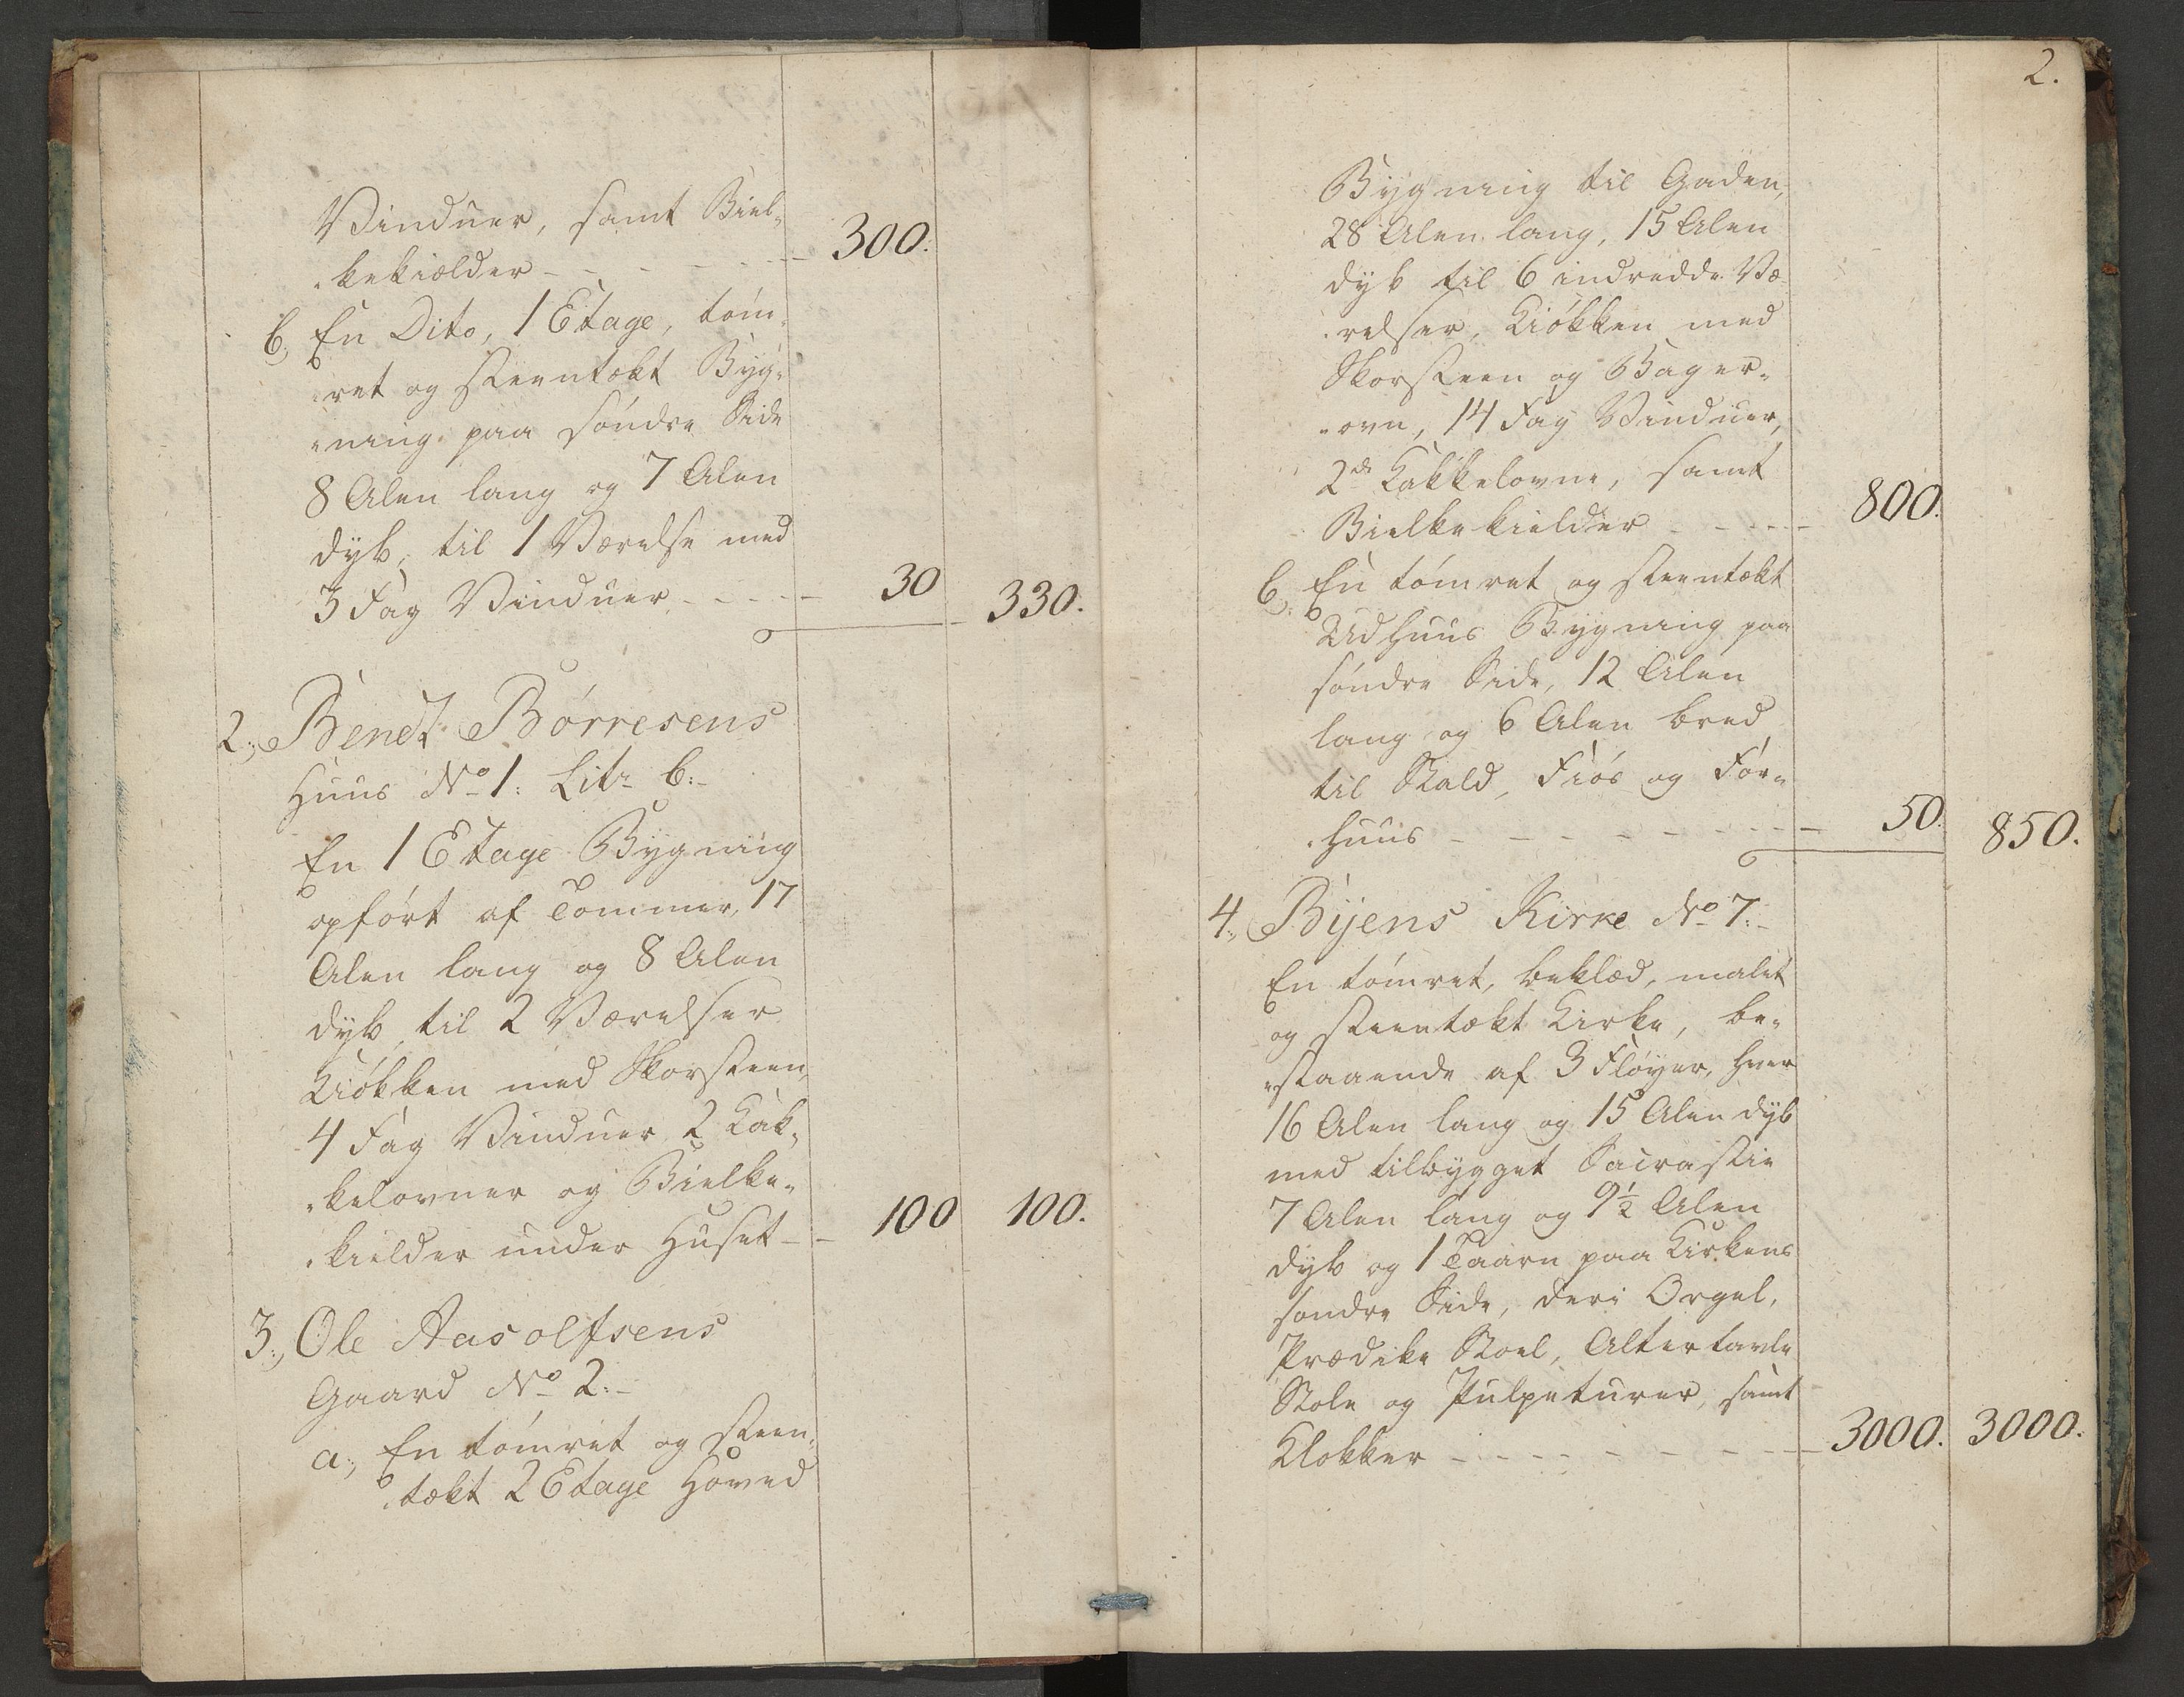 Vinduer, samt Biel-
-kekiælder - - - - - - 300.
b, En Dito, 1 Etage, tøm-
-ret og steentækt Byg-
-ning paa søndre Side
8 Alen lang og 7 Alen
dyb, til 1 Værelse med
3 Fag Vinduer - - - - - 30 330.
2, Bendt Børresens
Huus No 1. Litr b.-
En 1 Etage Bygning
opført af Tømmer, 17
Alen lang og 8 Alen
dyb til 2 Værelser
Kiøkken med Skorsteen,
4 Fag Vinduer 2 Kak-
-kelovner og Bielke-
-kielder under Huset - - 100 100.
3, Ole Aasolfsens
Gaard No 2.-
a, En tømret og steen-
-tækt 2 Etage Hoved
2.
Bygning til Gaden,
28 Alen lang, 15 Alen
dyb til 6 indredde Væ-
-relser, Kiøkken med
Skorsteen og Bager-
-ovn, 14 Fag Vinduer,
2de Kakkelovne, samt
Bielkekielder - - - - - 800.
b, En tømret og steentækt
Udhuus Bygning paa
søndre Side, 12 Alen
lang og 6 Alen bred
til Stald, Fiøs og Før-
-huus - - - - - - - - - 50. 850.
4, Byens Kirke No 7.-
En tømret, beklæd, malet
og steentækt Kirke, be-
-staaende af 3 Fløyer, hver
16 Alen lang og 15 Alen dyb
med tilbygget Sacrastie
7 Alen lang og 9½ Alen
dyb og 1 Taarn paa Kirkens
søndre Side, deri Orgel,
Prædike Stoel, Altertavle
Stole og Pulpeturer, samt
Klokker - - - - - - - - 3000. 3000.